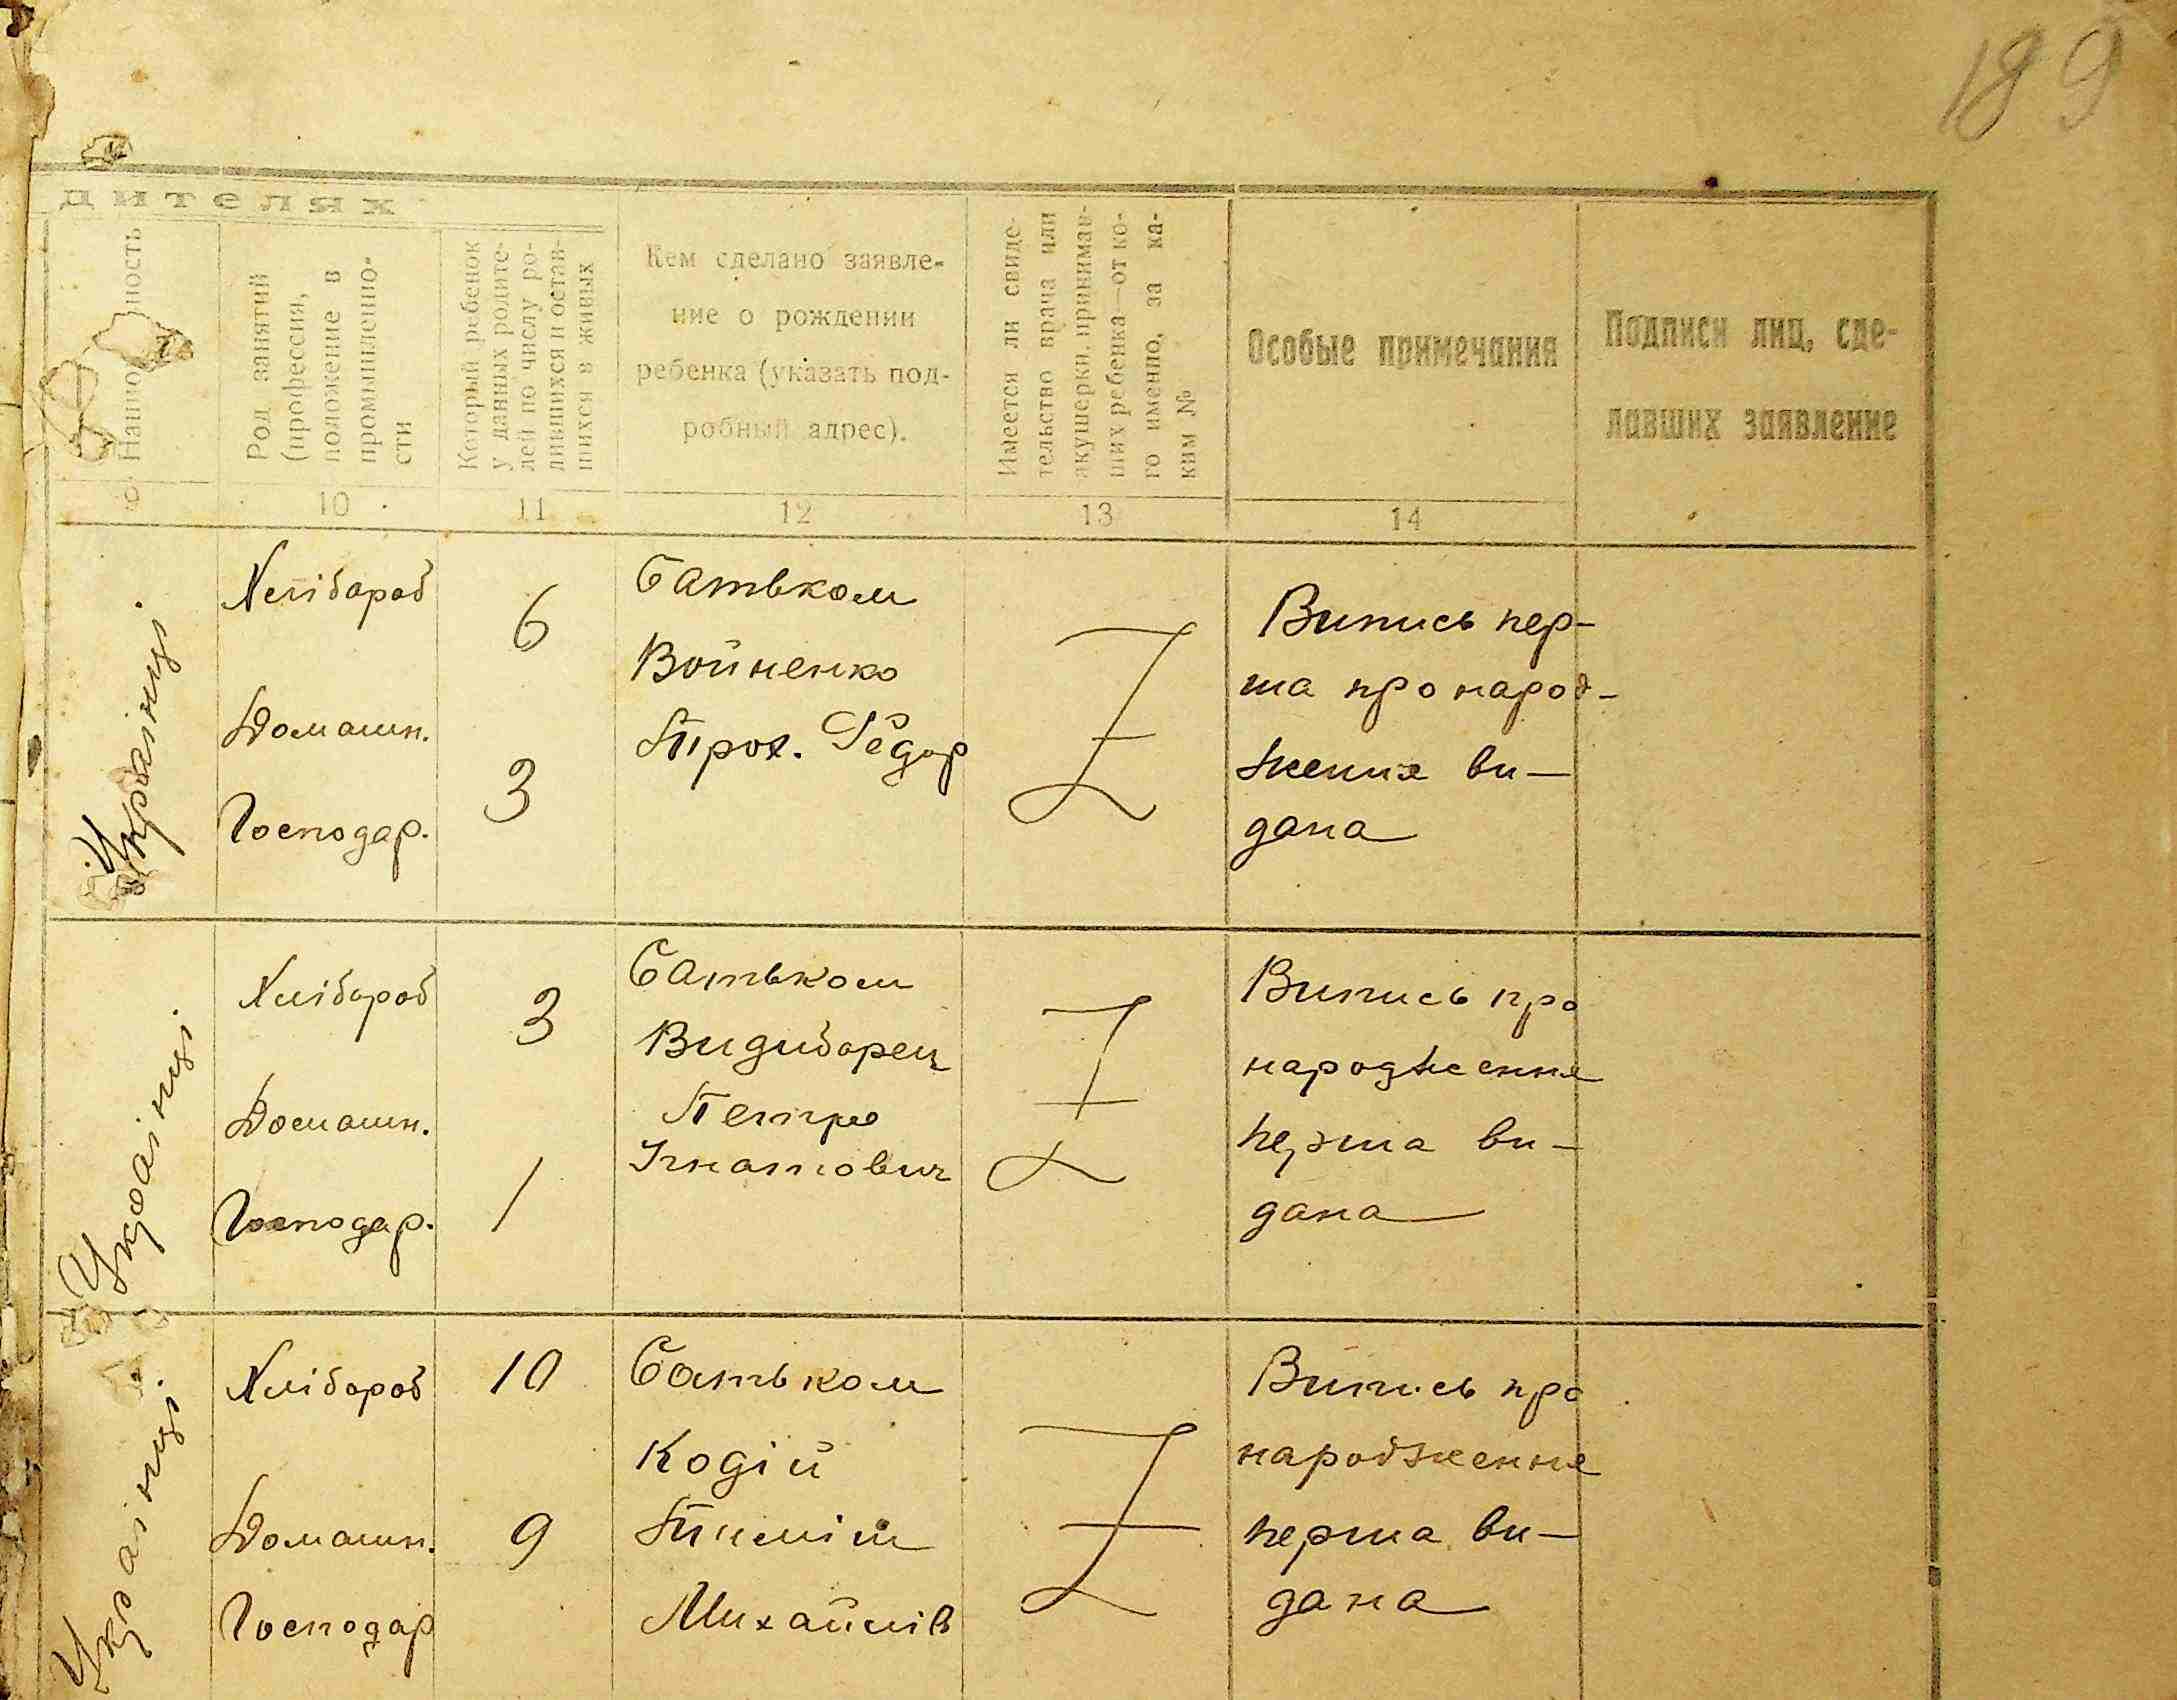 189
дителях
Национальность
Род занятий
(профессия,
положение в
промышленно-
сти
Который ребенок
у данных родите-
лей по числу ро-
дившихся и остав-
шихся в живых
Кем сделано заявле-
ние о рождении
ребенка (указать под-
робный адрес).
Имеется ли свиде-
тельство врача или
акушерки, принимав-
ших ребенка—от ко-
го именно, за ка-
ким №
Особые примечания
Подписи лиц, сде-
лавших заявление
9
10
11
12
13
14
Українці
Хлібороб
Домашн.
Господар.
6
3
Батьком
Войненко
Прох. Федор
Z
Випись пер-
ша про народ-
жения ви-
дана
Українці
Хлібороб
Домашн.
Господар.
3
1
Батьком
Видиборец
Петро
Ігнатович
Z
Випись про
народження
перша ви-
дана
Українці
Хлібороб
Домашн.
Господар
10
9
Батьком
Кодій
Пиліп
Михайлів
Z
Випись про
народження
перша ви-
дана